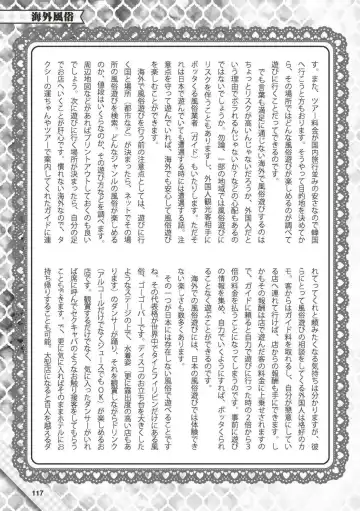 海外風俗
す。また、ツアー料金が国内旅行並みの安さなので韓国
へ行こうと方もおります。そうやって目的地を決めてか
ら、その場所ではどんな風俗遊びが楽しめるのか調べて
遊びに行くことだってできるのです。
でも言葉も満足に通じない海外で風俗遊びするのは
ちょっとリスクが高いんじゃないだろうか、外国人だと
いう理由でボラれるんじゃないか？などの心配もあるの
ではないでしょうか。勿論、一部の地域では風俗遊びに
リスクを伴うこともありますし、外国人観光客相手に
ボッタくる風俗業者（ガイド）もいたりします。ただそ
れは日本で遊んでいても遭遇する時には遭遇する話。注
意点を守って遊んでいれば、海外でも安心して風俗遊び
を楽しむことができます。
海外で風俗遊びを行う前の注意点としては、遊びに行
く国と場所（都市など）が決まったら、ネットでその場
所の風俗情報を検索。どんなジャンルの風俗が楽しめる
のか、値段はいくらなのか、その遊び方などを調べます。
周辺地図などがあればプリントアウトしておくのも良い
でしょう。次に遊びに行く場所が決まったら、自分の足
でお店へいくことが肝心です。慣れない海外なので、タ
クシーの運ちゃんやツアーで案内してくれたガイドに連
れてってくれと頼みたくなる気持ちは分かりますが、彼
らにとって風俗遊びの相談をしてくる外国人は格好のカ
モ。客からはガイド料を取れるし、自分が懇意にしてい
る店へ連れて行けば、店からの報酬も手にできます。し
かもその報酬は店で遊んだ客の料金に上乗せされますの
で、ガイドに頼ると自力で遊びに行った時の2倍から3
倍の料金を払うことになってしまうのです。事前に遊び
の情報を集め、自力でいくようにすれば、ボッタくられ
ることなく遊ぶことができるのです。
海外での風俗遊びには、日本の風俗遊びでは体験でき
ない楽しさも数多くあります。
その一つが日本には存在しない風俗で遊べることです
ね。その代表格が世界中でタイとフィリピンだけにある風
俗、ゴーゴーバーです。ディスコのお立ち台を大きくした
ようなステージの上で、水着姿（更に露出度の高い店もあ
ります）のダンサーが踊り、それを観賞しながらドリンク
（アルコールだけでなくジュースでもOK）が楽しめるお
店です。観賞するだけでなく、気に入ったダンサーがいれ
ば席に呼んでセクキャバのようなお触り接客をしてもらう
こともできますし、更に気に入ればそのままホテルにお
持ち帰りすることも可能。大型店になると百人を越えるダ
117